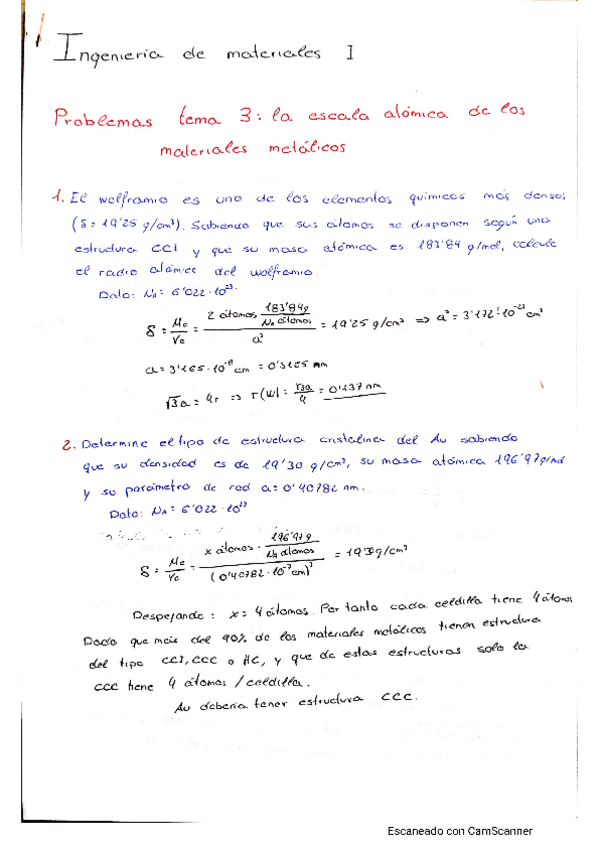 Ingeniería de materiales I
Problemas tema 3: la escala atómica de los
materiales metálicos
1. El wolframio es uno de los elementos químicos más densos
(δ = 19'25 g/cm³). Sabiendo que sus átomos se disponen según una
estructura CCI y que su masa atómica es 183'84 g/mol, calcule
el radio atómico del wolframio.
Dato: NA = 6'022·10²³
δ = Mc/Vc = (2 átomos · 183'84g/NA átomos)/a³ = 19'25 g/cm³ => a³ = 3'172·10⁻²³ cm³
a = 3'165·10⁻⁸ cm = 0'3165 nm
√3a = 4r => r(W) = √3a/4 = 0'137 nm
2. Determine el tipo de estructura cristalina del Au sabiendo
que su densidad es de 19'30 g/cm³, su masa atómica 196'97g/mol
y su parámetro de red a = 0'40782 nm.
Dato: NA = 6'022·10²³
δ = Mc/Vc = (x átomos · 196'97g/NA átomos)/(0'40782·10⁻⁷cm)³ = 19'30g/cm³
Despejando: x = 4 átomos. Por tanto cada celdilla tiene 4 átomos
Dado que más del 90% de los materiales metálicos tienen estructura
del tipo CCI, CCC o HC, y que de estas estructuras solo la
CCC tiene 4 átomos/celdilla.
Au debería tener estructura CCC.
Escaneado con CamScanner